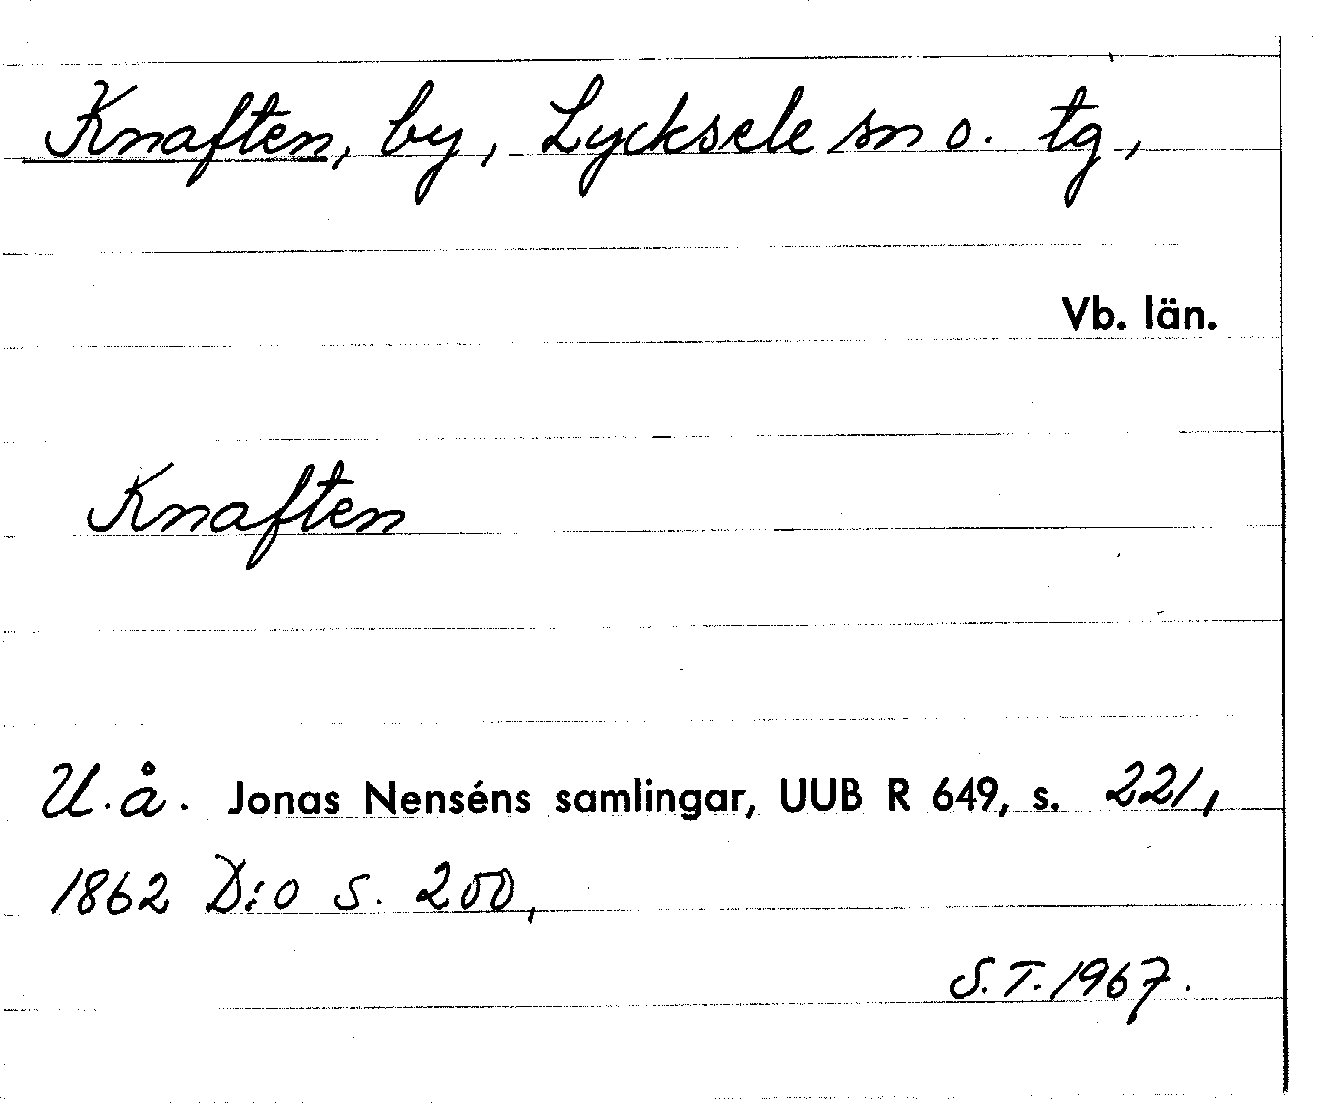 Knaften, by, Lycksele sn o. tg,
Vb. län.
Knaften
U.å. Jonas Nenséns samlingar, UUB R 649, s. 221,
1862 D:o s. 200,
S.T. 1967.